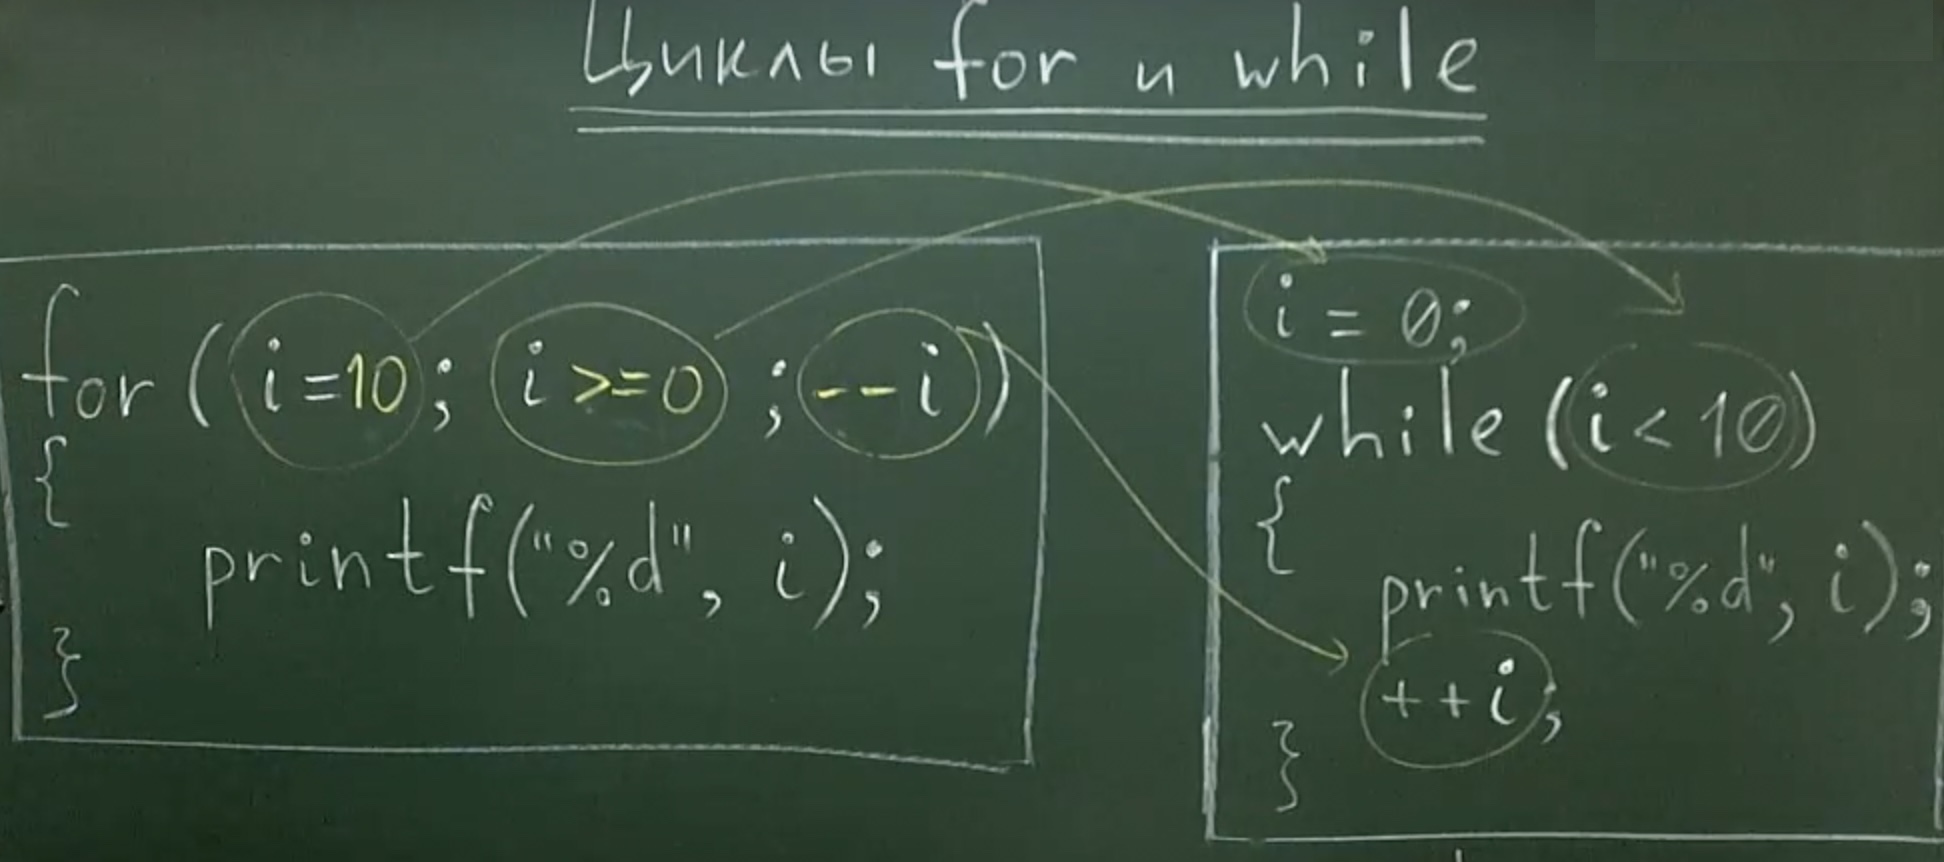 Циклы for и while
for ( i=10 ; i >=0 ; --i )
{
printf("%d", i);
}
i = 0;
while (i < 10)
{
printf("%d", i);
++i;
}